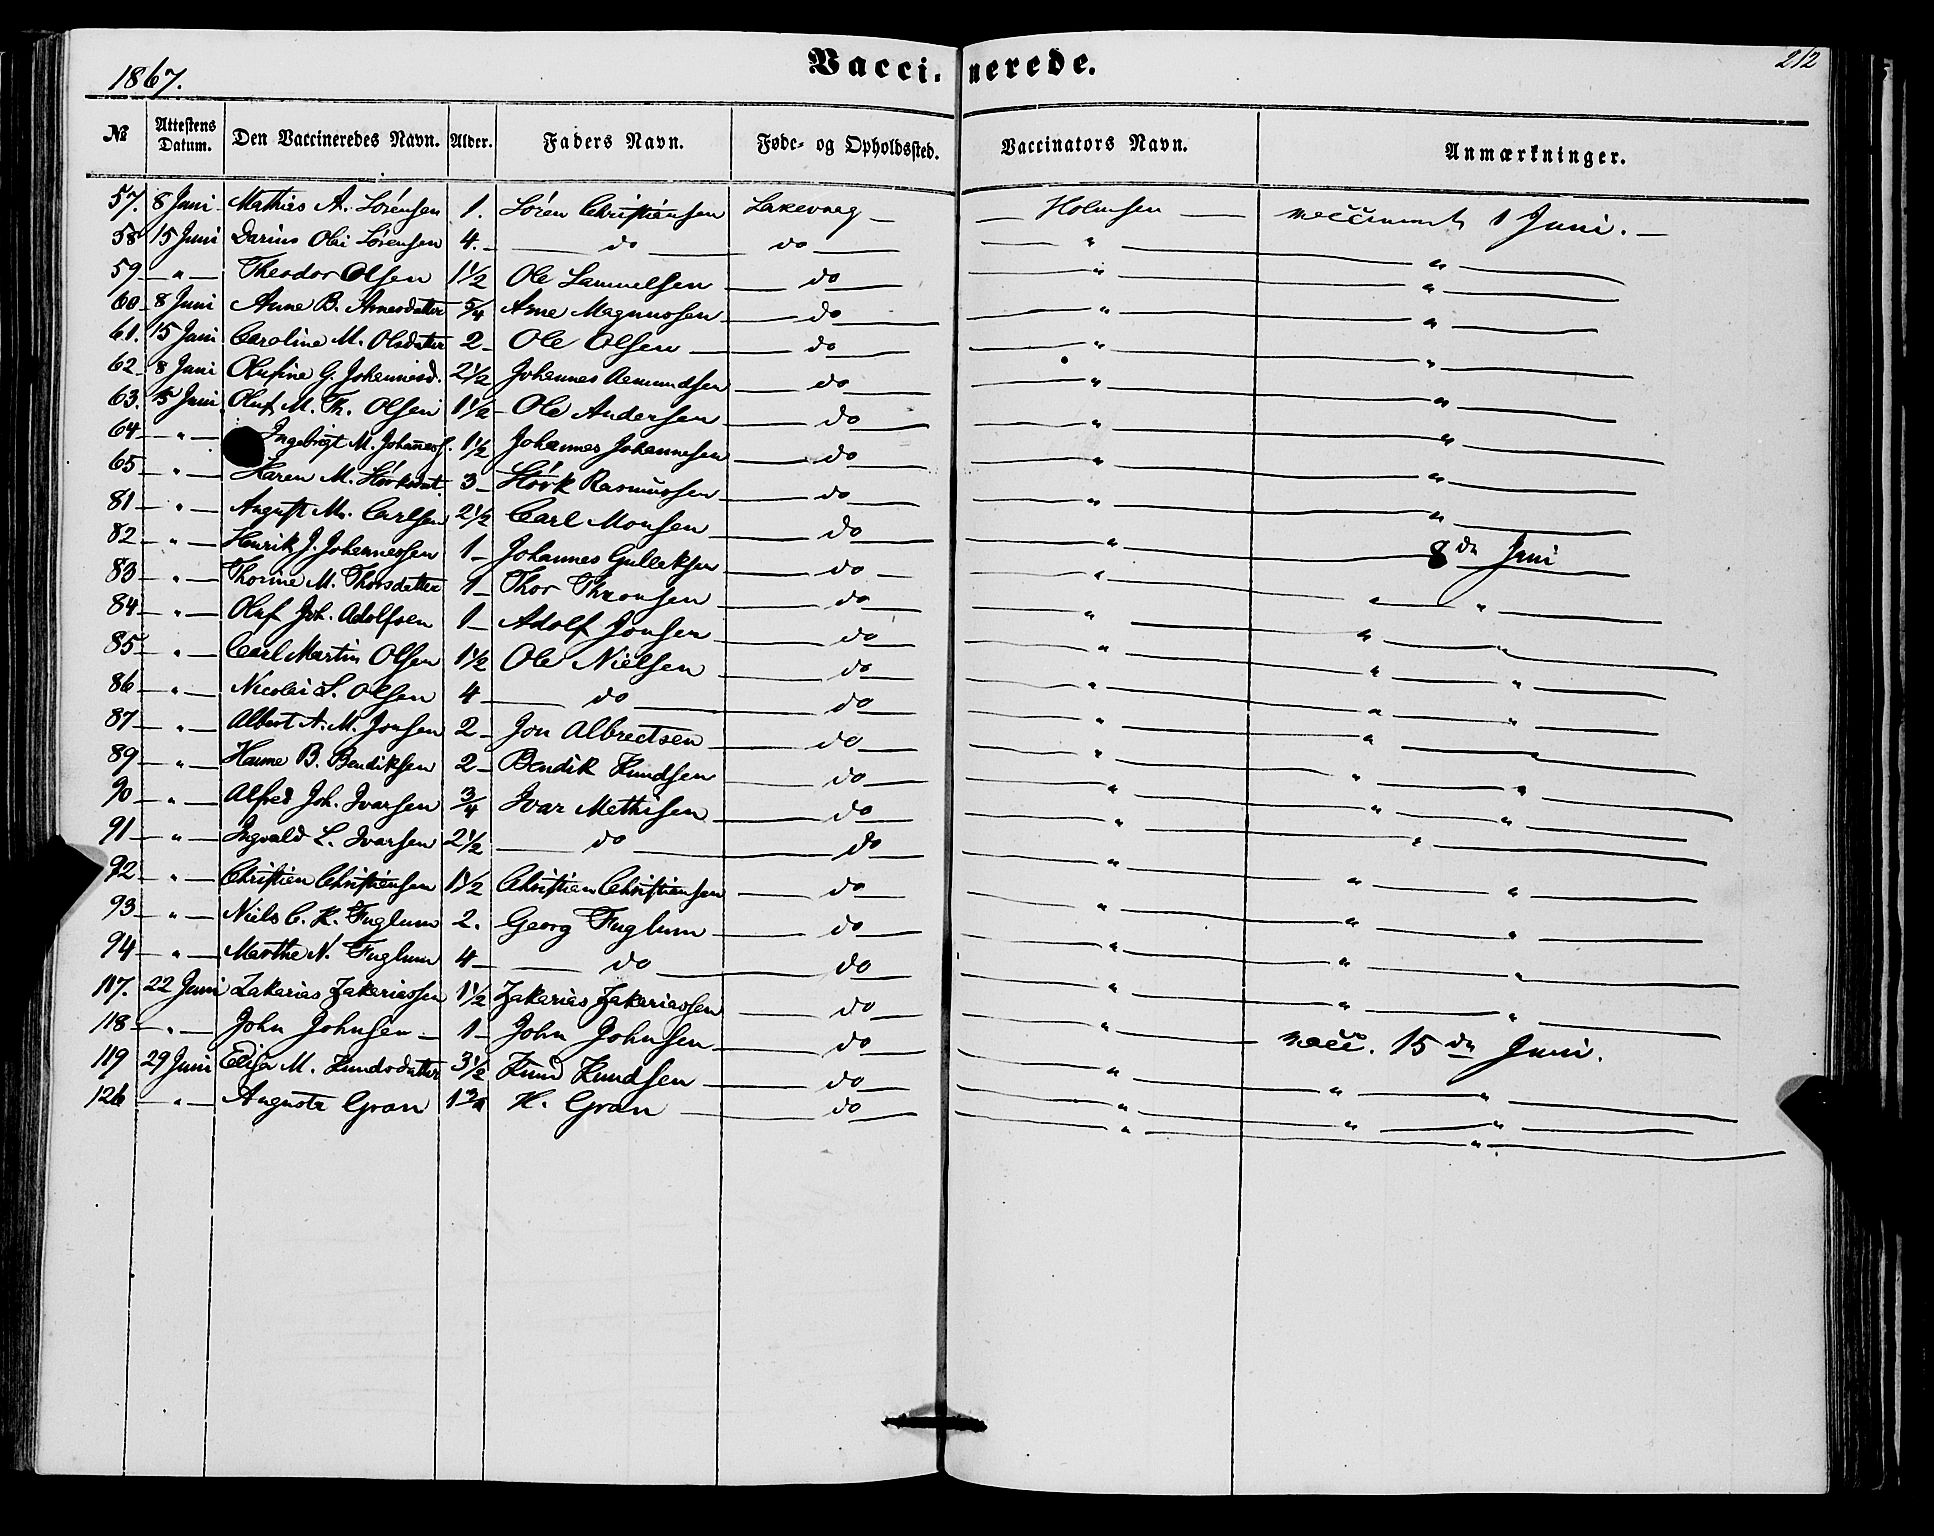 1867.
Vaccinerede.
212
№ Attestens Datum. Den Vaccineredes Navn. Alder. Faders Navn. Føde- og Opholdssted. Vaccinators Navn. Anmærkninger.
57. 8 Juni Mathias A. Sörensen 1. Sören Christiansen Laksevaag Holmsen vaccineret 1 Juni.
58 15 Juni Darius Olai Sörensen 4. do do " "
59 " Theodor Olsen 1 1/2 Ole Samuelsen do " "
60 8 Juni Anne B. Arnesdatter 5/4 Arne Magnussen do " "
61. 15 Juni Caroline M. Olsdatter 2 Ole Olsen do " "
62 8 Juni Olufine G. Johannesd. 2 1/2 Johannes Aamundsen do " "
63. 15 Juni Oluf M. Th. Olsen 1 1/2 Ole Andersen do " "
64 " Ingebrigt M. Johanness. 1 1/2 Johannes Johannesen do " "
65 " Karen M. Störksdat. 3 Störk Rasmussen do " "
81 " August M. Carlsen 2 1/2 Carl Monsen do " 8de Juni
82 " Henrik J. Johannessen 1 Johannes Gulleksen do " " "
83 " Thorine M. Thorsdatter 1 Thor Thronsen do " " "
84 " Oluf Joh. Adolfsen 1 Adolf Jonsen do " " "
85 " Carl Martin Olsen 1 1/2 Ole Nielsen do " " "
86 " Nicolai S. Olsen 4 do do " " "
87 " Albert A. M. Jonsen 2 Jon Albrectsen do " " "
89 " Hanne B. Bendiksen 2 Bendik Knudsen do " " "
90 " Alfred Joh. Ivarsen 3/4 Ivar Mathisen do " "
91 " Ingvald L. Ivarsen 2 1/2 do do " " "
92 " Christian Christiansen 1 1/2 Christian Christiansen do " " "
93 " Niels C. K. Fuglum 2. Georg Fuglum do " " "
94 " Marthe N. Fuglum 4 do do " " "
117. 22 Juni Zakarias Zakariassen 1 1/2 Zakarias Zakariassen do " vacc. 15de Juni.
118 " John Johnsen 1 John Johnsen do " " "
119 29 Juni Elisa M. Knudsdatter 3 1/2 Knud Knudsen do " " "
126 " Augusta Gran 1 3/4 K. Gran do " "